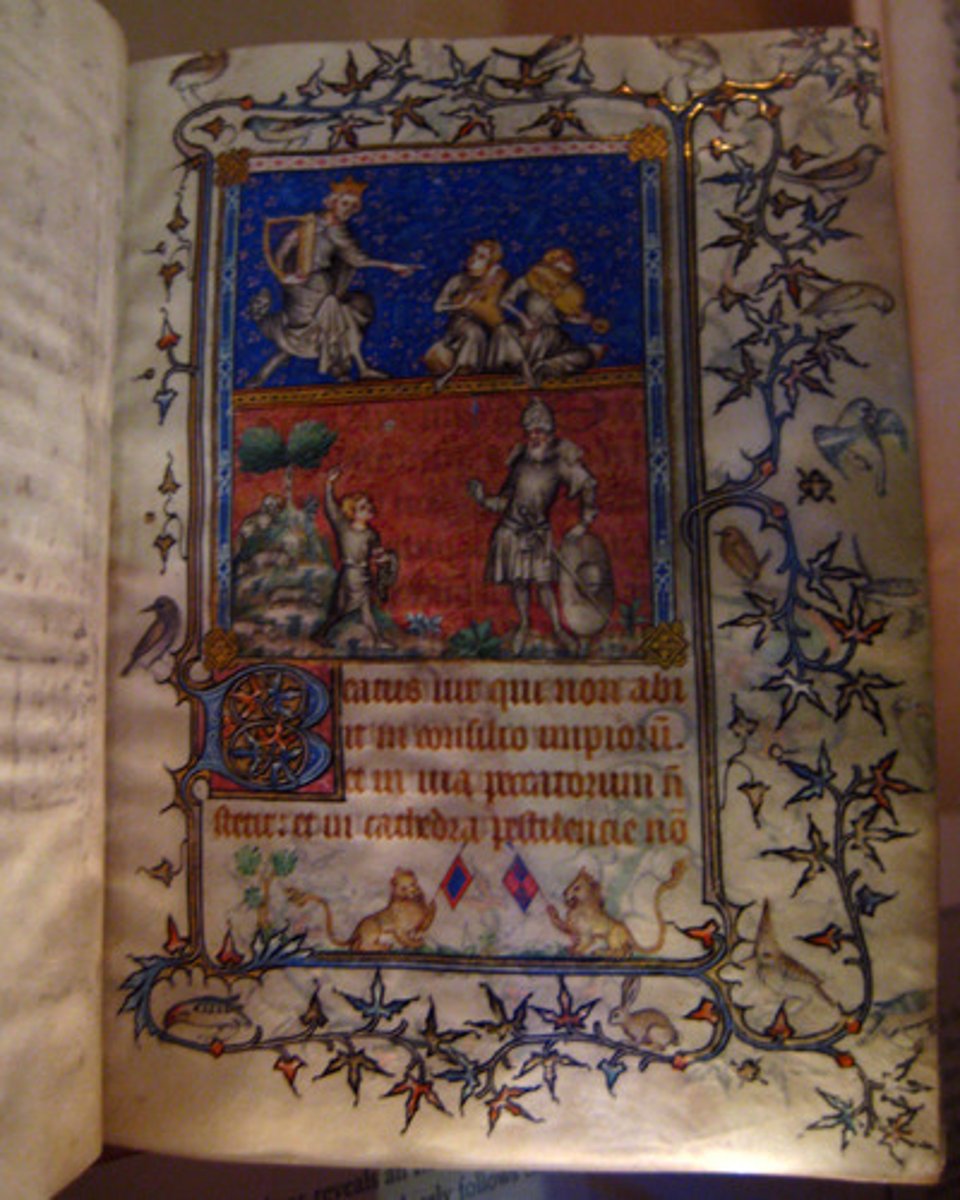 Beatus uir qui non abi
it in consilio impiorū.
et in uia peccatorum n̄
stetit: et in cathedra pestilencie nō
reveals an
follows